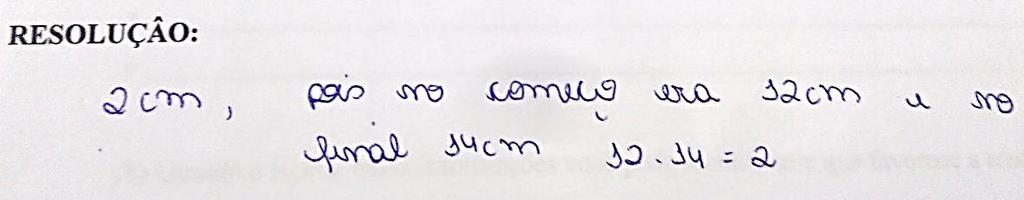 RESOLUÇÂO:
2cm, pois no começo era 12cm e no
final 14cm 12.14=2